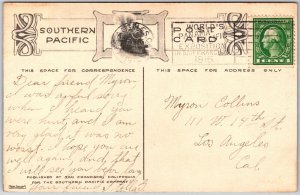 SOUTHERN
PACIFIC
WORLD'S
EXPOSITION
1915
1 CENT 1
THIS SPACE FOR CORRESPONDENCE
THIS SPACE FOR ADDRESS ONLY
Dear friend Myron -
I was awful sorry
when I heard you
were hurt, and I am
very glad it was no
worst. I hope you are
well again, and that
I will see you
Your friend
Myron Collins
111 W. 19th st
Los Angeles
Cal.
PUBLISHED AT SAN FRANCISCO, CALIFORNIA
FOR THE SOUTHERN PACIFIC COMPANY